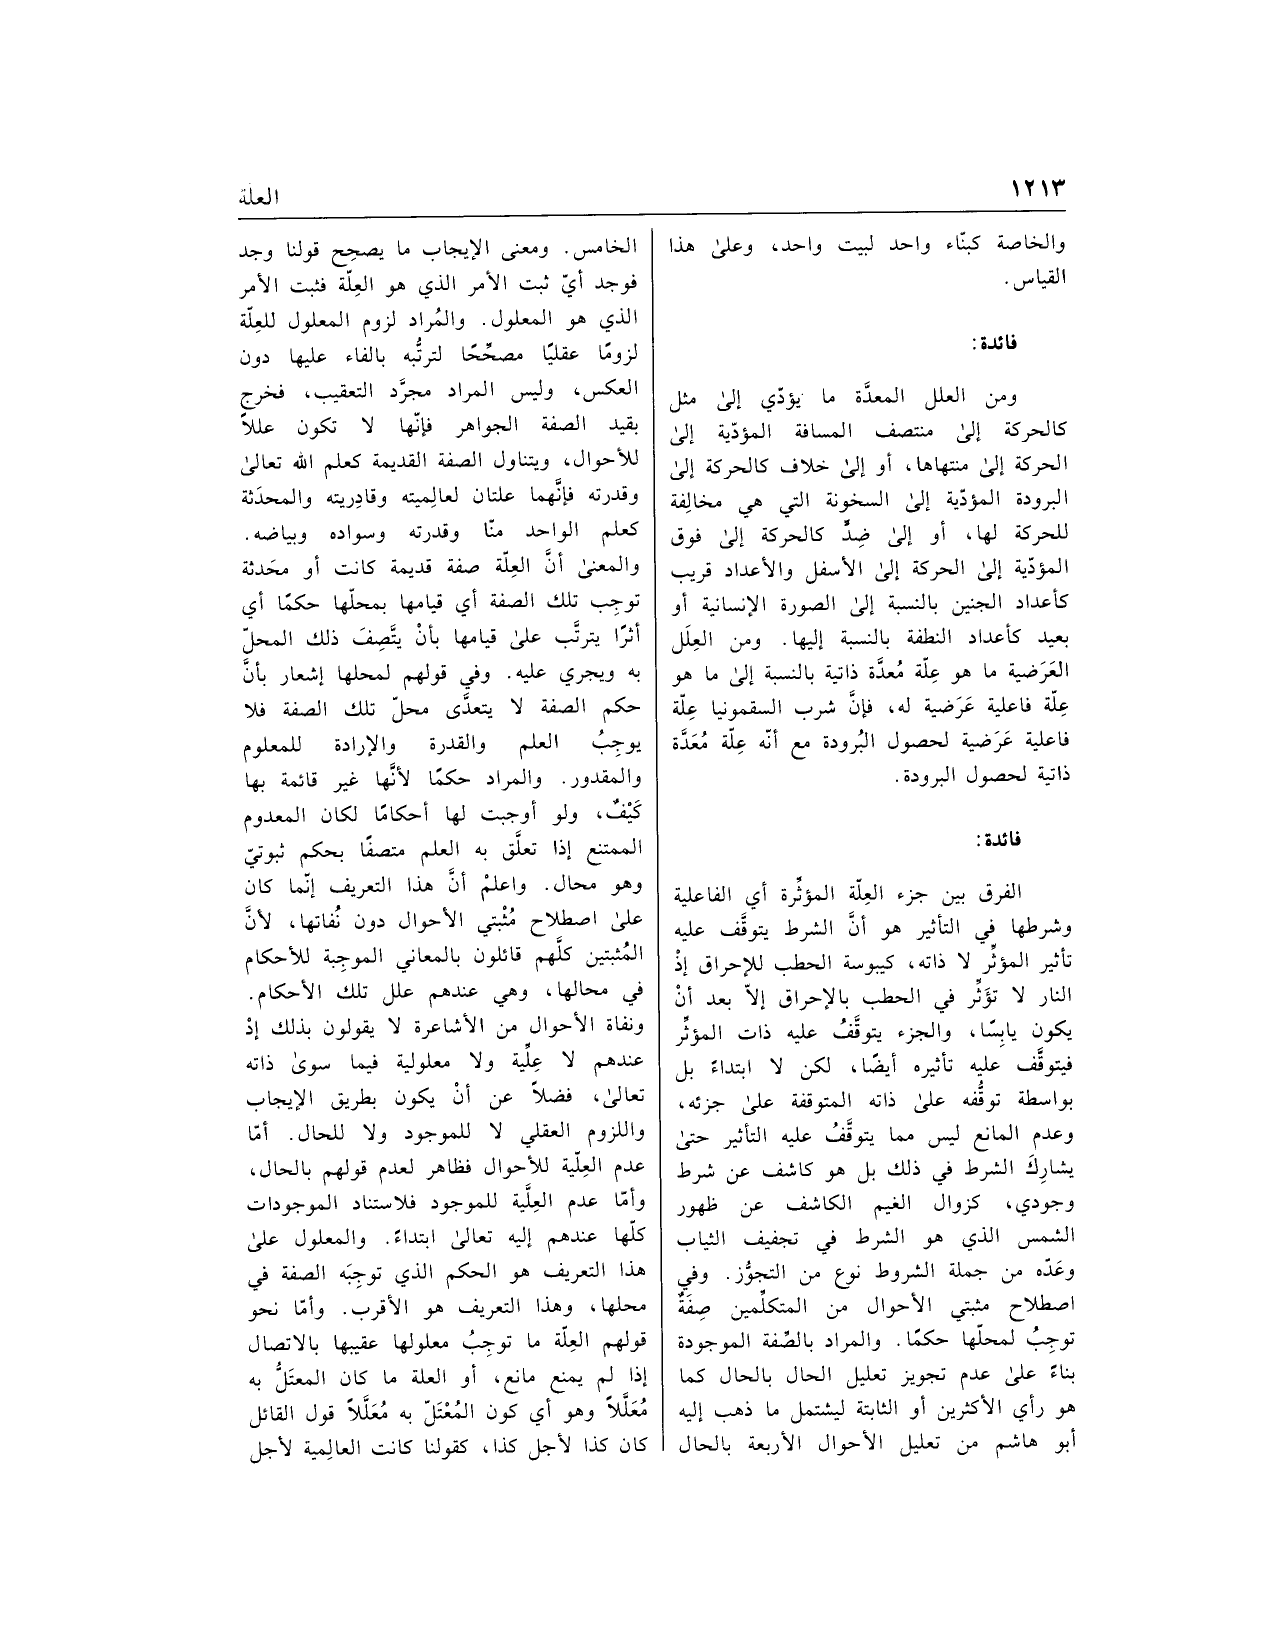 ١٢١٣
العلة
والخاصة كبنّاء واحد لبيت واحد، وعلىٰ هذا
القياس.
فائدة:
ومن العلل المعدَّة ما يؤدّي إلىٰ مثل
كالحركة إلىٰ منتصف المسافة المؤدّية إلىٰ
الحركة إلىٰ منتهاها، أو إلىٰ خلاف كالحركة إلىٰ
البرودة المؤدّية إلىٰ السخونة التي هي مخالِفة
للحركة لها، أو إلىٰ ضِدٍّ كالحركة إلىٰ فوق
المؤدّية إلىٰ الحركة إلىٰ الأسفل والأعداد قريب
كأعداد الجنين بالنسبة إلىٰ الصورة الإنسانية أو
بعيد كأعداد النطفة بالنسبة إليها. ومن العِلَل
العَرَضية ما هو عِلّة مُعدَّة ذاتية بالنسبة إلىٰ ما هو
عِلّة فاعلية عَرَضية له، فإنَّ شرب السقمونيا عِلّة
فاعلية عَرَضية لحصول البُرودة مع أنّه عِلّة مُعَدَّة
ذاتية لحصول البرودة.
فائدة:
الفرق بين جزء العِلّة المؤثّرة أي الفاعلية
وشرطها في التأثير هو أنَّ الشرط يتوقَّف عليه
تأثير المؤثّر لا ذاته، كيبوسة الحطب للإحراق إذْ
النار لا تؤثّر في الحطب بالإحراق إلاّ بعد أنْ
يكون يابِسًا، والجزء يتوقَّفُ عليه ذات المؤثّر
فيتوقَّف عليه تأثيره أيضًا، لكن لا ابتداءً بل
بواسطة توقُّفه علىٰ ذاته المتوقفة علىٰ جزئه،
وعدم المانع ليس مما يتوقَّفُ عليه التأثير حتىٰ
يشارِكَ الشرط في ذلك بل هو كاشف عن شرط
وجودي، كزوال الغيم الكاشف عن ظهور
الشمس الذي هو الشرط في تجفيف الثياب
وعَدّه من جملة الشروط نوع من التجوُّز. وفي
اصطلاح مثبتي الأحوال من المتكلِّمين صِفَةٌ
توجِبُ لمحلّها حكمًا. والمراد بالصِّفة الموجودة
بناءً علىٰ عدم تجويز تعليل الحال بالحال كما
هو رأي الأكثرين أو الثابتة ليشتمل ما ذهب إليه
أبو هاشم من تعليل الأحوال الأربعة بالحال
الخامس. ومعنى الإيجاب ما يصحِح قولنا وجد
فوجد أيّ ثبت الأمر الذي هو العِلّة فثبت الأمر
الذي هو المعلول. والمُراد لزوم المعلول للعِلّة
لزومًا عقليًا مصحِّحًا لترتُّبه بالفاء عليها دون
العكس، وليس المراد مجرَّد التعقيب، فخرج
بقيد الصفة الجواهر فإنّها لا تكون عللاً
للأحوال، ويتناول الصفة القديمة كعلم الله تعالىٰ
وقدرته فإنَّهما علتان لعالِميته وقادِريته والمحدَثة
كعلم الواحد منّا وقدرته وسواده وبياضه.
والمعنىٰ أنَّ العِلّة صفة قديمة كانت أو محَدثة
توجِب تلك الصفة أي قيامها بمحلّها حكمًا أي
أثرًا يترتَّب علىٰ قيامها بأنْ يتَّصِفَ ذلك المحلّ
به ويجري عليه. وفي قولهم لمحلها إشعار بأنَّ
حكم الصفة لا يتعدَّى محلّ تلك الصفة فلا
يوجِبُ العلم والقدرة والإرادة للمعلوم
والمقدور. والمراد حكمًا لأنَّها غير قائمة بها
كَيْفٌ، ولو أوجبت لها أحكامًا لكان المعدوم
الممتنع إذا تعلَّق به العلم متصفًا بحكم ثبوتيّ
وهو محال. واعلمْ أنَّ هذا التعريف إنّما كان
علىٰ اصطلاح مُثْبتي الأحوال دون نُفاتها، لأنَّ
المُثبتين كلَّهم قائلون بالمعاني الموجِبة للأحكام
في محالها، وهي عندهم علل تلك الأحكام.
ونفاة الأحوال من الأشاعرة لا يقولون بذلك إذْ
عندهم لا عِلِّية ولا معلولية فيما سوىٰ ذاته
تعالىٰ، فضلاً عن أنْ يكون بطريق الإيجاب
واللزوم العقلي لا للموجود ولا للحال. أمّا
عدم العِلّية للأحوال فظاهر لعدم قولهم بالحال،
وأمّا عدم العِلَّية للموجود فلاستناد الموجودات
كلّها عندهم إليه تعالىٰ ابتداءً. والمعلول علىٰ
هذا التعريف هو الحكم الذي توجِبَه الصفة في
محلها، وهذا التعريف هو الأقرب. وأمّا نحو
قولهم العِلّة ما توجِبُ معلولها عقيبها بالاتصال
إذا لم يمنع مانع، أو العلة ما كان المعتَلُّ به
مُعَلَّلاً وهو أي كون المُعْتَلّ به مُعَلَّلاً قول القائل
كان كذا لأجل كذا، كقولنا كانت العالِمية لأجل